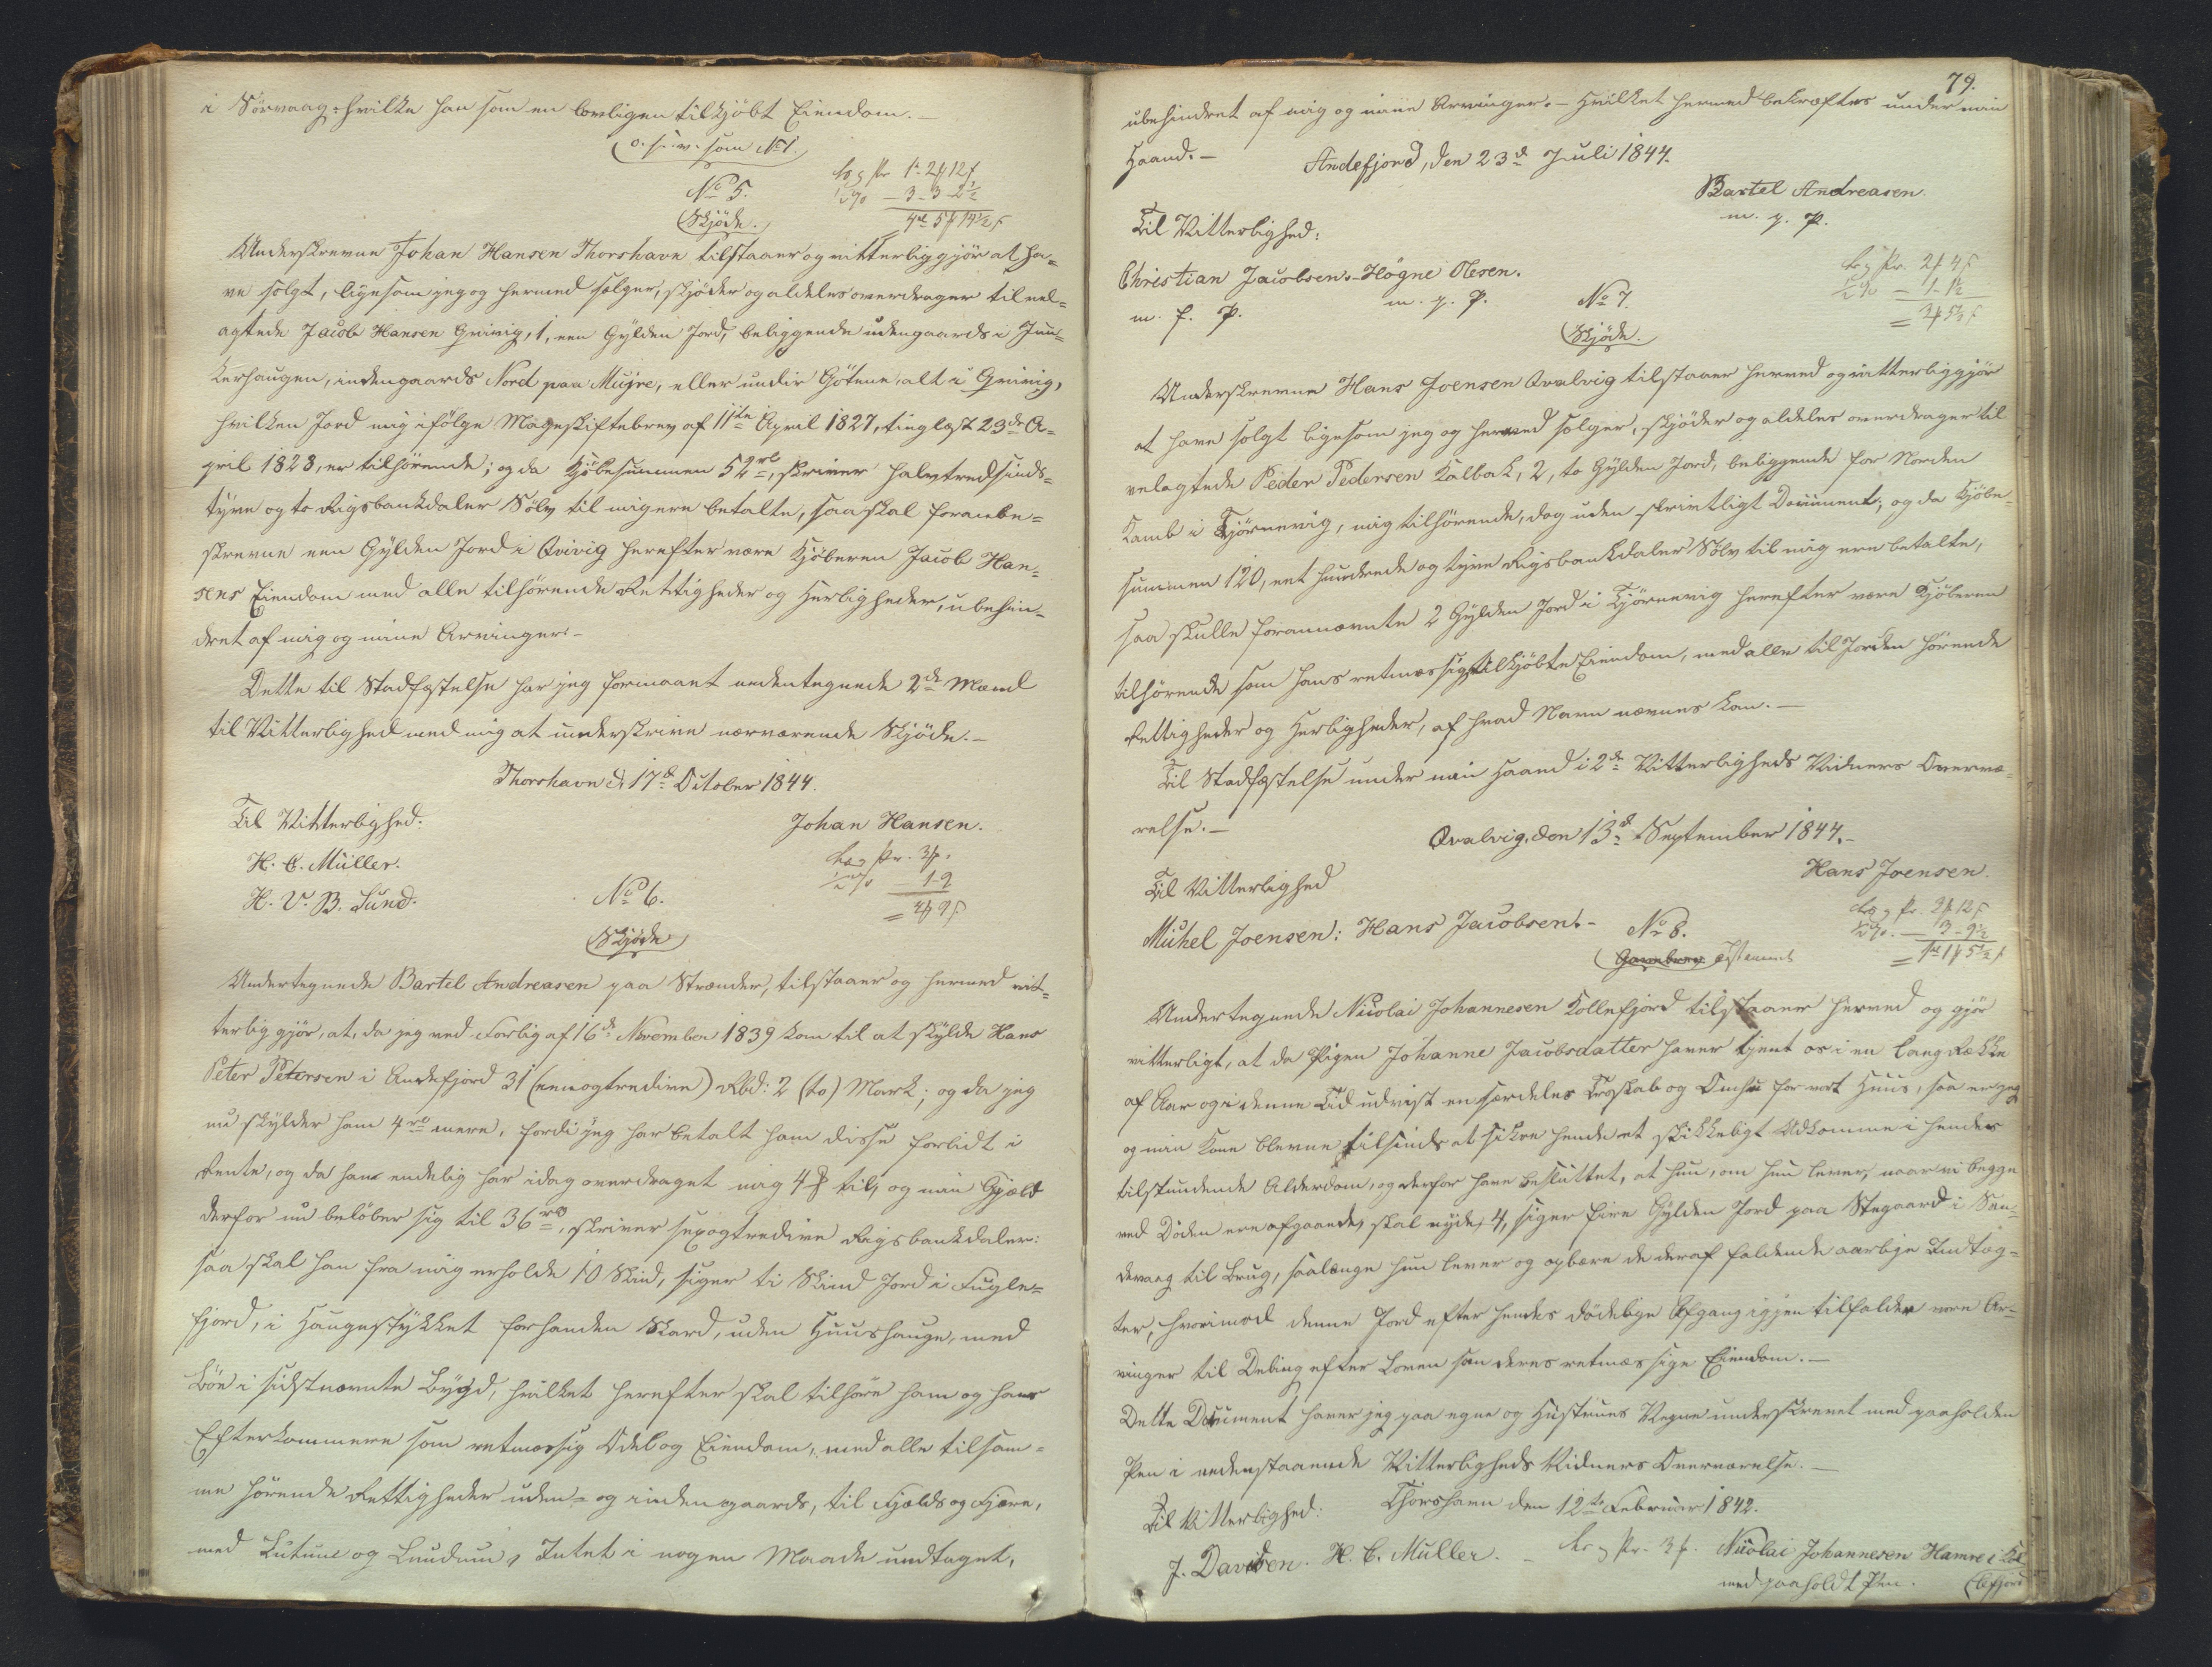 i Sörvaag, hvilke han som en lovligen tilkjöbt Eiendom.—
o. s. v. som No 1.
No 5.
Skjöde.
Underskrevne Johan Hansen Thorshavn tilstaaer og vitterliggjör at ha-
ve solgt, ligesom jeg og hermed sælger, skjöder og aldeles overdrager til vel-
agtede Jacob Hansen Qvivig, 1, een Gylden Jord, beliggende udengaards i Jun-
kerhaugen, indengaards Nord paa Mujre, eller undir Götune, alt i Qvivig,
hvilken Jord mig ifölge Mageskiftebrev af 11te April 1827, tinglæst 23de A-
pril 1828, er tilhörende; og da Kjöbesummen 52 rbd, skriver halvtredsinds-
tyve og to Rigsbankdaler Sölv til mig ere betalte, saa skal foranbe-
skrevne een Gylden Jord i Qvivig herefter være Kjöberen Jacob Han-
sens Eiendom med alle tilhörende Rettigheder og Herligheder, ubehin-
dret af mig og mine Arvinger.—
Dette til Stadfæstelse har jeg formaaet nedentegnede 2de Mænd
til Vitterlighed med mig at underskrive nærværende Skjöde.—
Thorshavn d. 17d October 1844.
Til Vitterlighed:
Johan Hansen.
H. C. Müller.
H. V. B. Lund.
No 6.
Skjöde
Undertegnede Bartel Andreasen paa Strænder, tilstaaer og hermed vit-
terlig gjör, at, da jeg ved Forlig af 16de November 1839 kom til at skylde Hans
Peter Petersen i Andefjord 31 (eenogtredive) Rbd: 2 (to) Mark; og da jeg
nu skylder ham 4 rbd mere, fordi jeg har betalt ham disse forlidt i
Rente, og da han endelig har idag overdraget mig 4 ß til, og min Gjæld
derfor nu belöber sig til 36 rbd, skriver sexogtredive Rigsbankdaler:
saa skal han fra mig erholde 10 Skind, siger ti Skind Jord i Fugle-
fjord, i Haugestykket forhanden Skard, uden Huushauge, med
Böe i sidstnævnte Bygd, hvilket herefter skal tilhöre ham og hans
Efterkommere som retmæssig Odel og Eiendom, med alle tilsam-
me hörende Rettigheder uden- og indengaards, til Fjelds og Fjære,
med Lutum og Lundum, Intet i nogen Maade undtaget,
79.
ubehindret af mig og mine Arvinger.— Hvilket hermed bekræftes under min
Haand.—
Andefjord, den 23d Juli 1844.
Bartel Andreasen.
m. p. P.
Til Vitterlighed:
Christian Jacobsen.— Högne Olesen.
m. f. P. m. p. P.
No 7.
Skjöde.
Underskrevne Hans Joensen Qvalvig tilstaaer herved og vitterliggjör
at have solgt ligesom jeg og herved sælger, skjöder og aldeles overdrager til
velagtede Peder Pedersen Kalbak, 2, to Gylden Jord, beliggende for Norden
Kamb i Tjörnevig, mig tilhörende, dog uden skrivtligt Document; og da Kjöbe-
summen 120, eet hundrede og tyve Rigsbankdaler Sölv til mig ere betalte,
saa skulle forannævnte 2 Gylden Jord i Tjörnevig herefter være Kjöberen
tilhörende som hans retmæssig tilkjöbte Eiendom, med alle til Jorden hörende
Rettigheder og Herligheder, af hvad Navn nævnes kan.—
Til Stadfæstelse under min Haand i 2de Vitterligheds Vidners Overvæ-
relse.—
Qvalvig, den 13d September 1844.—
Til Vitterlighed
Hans Joensen.
Michel Joensen: Hans Jacobsen.—
No 8.
Gavebrev Testament
Undertegnede Nicolai Johannesen Kollefjord tilstaaer herved og gjör
vitterligt, at da Pigen Johanne Jacobsdatter haver tjent os i en lang Række
af Aar og i denne Tid udvist en særdeles Troskab og Omhu for vort Huus, saa er jeg
og min Kone blevne tilsinds at sikre hende et skikkeligt Udkomme i hendes
tilstundende Alderdom, og derfor have besluttet, at hun, om hun lever, naar vi begge
ved Döden ere afgaaede, skal nyde, 4, siger fire Gylden Jord paa Stegaard i San-
devaag til Brug, saalænge hun lever og opbære de deraf faldende aarlige Indtæg-
ter, hvorimod denne Jord efter hendes dödelige Afgang igjen tilfalder vore Ar-
vinger til Deling efter Loven som deres retmæssige Eiendom.—
Dette Document haver jeg paa egne og Hustrues Vegne underskrevet med paaholden
Pen i nedenstaaende Vitterligheds Vidners Overværelse.—
Til Vitterlighed:
Thorshavn den 12te Februar 1842.
J. Davidsen. H. C. Müller.—
Nicolai Johannesen Hamre i Kol-
med paaholdt Pen. lefjord